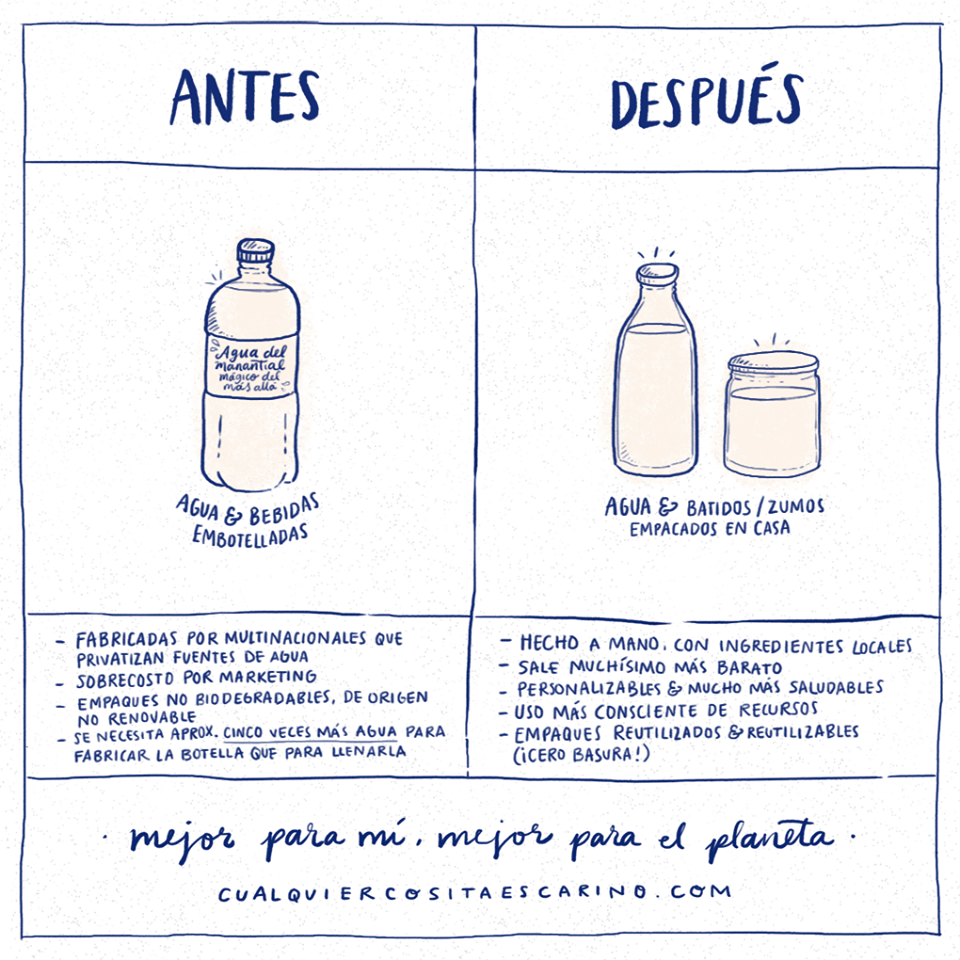 ANTES
DESPUÉS
Agua del
manantial
mágico del
más allá
AGUA & BEBIDAS
EMBOTELLADAS
AGUA & BATIDOS / ZUMOS
EMPACADOS EN CASA
- FABRICADAS POR MULTINACIONALES QUE
PRIVATIZAN FUENTES DE AGUA
- SOBRECOSTO POR MARKETING
- EMPAQUES NO BIODEGRADABLES, DE ORIGEN
NO RENOVABLE
- SE NECESITA APROX. CINCO VECES MÁS AGUA PARA
FABRICAR LA BOTELLA QUE PARA LLENARLA
- HECHO A MANO, CON INGREDIENTES LOCALES
- SALE MUCHÍSIMO MÁS BARATO
- PERSONALIZABLES & MUCHO MÁS SALUDABLES
- USO MÁS CONSCIENTE DE RECURSOS
- EMPAQUES REUTILIZADOS & REUTILIZABLES
(¡CERO BASURA!)
· mejor para mí, mejor para el planeta ·
CUALQUIERCOSITAESCARINO.COM